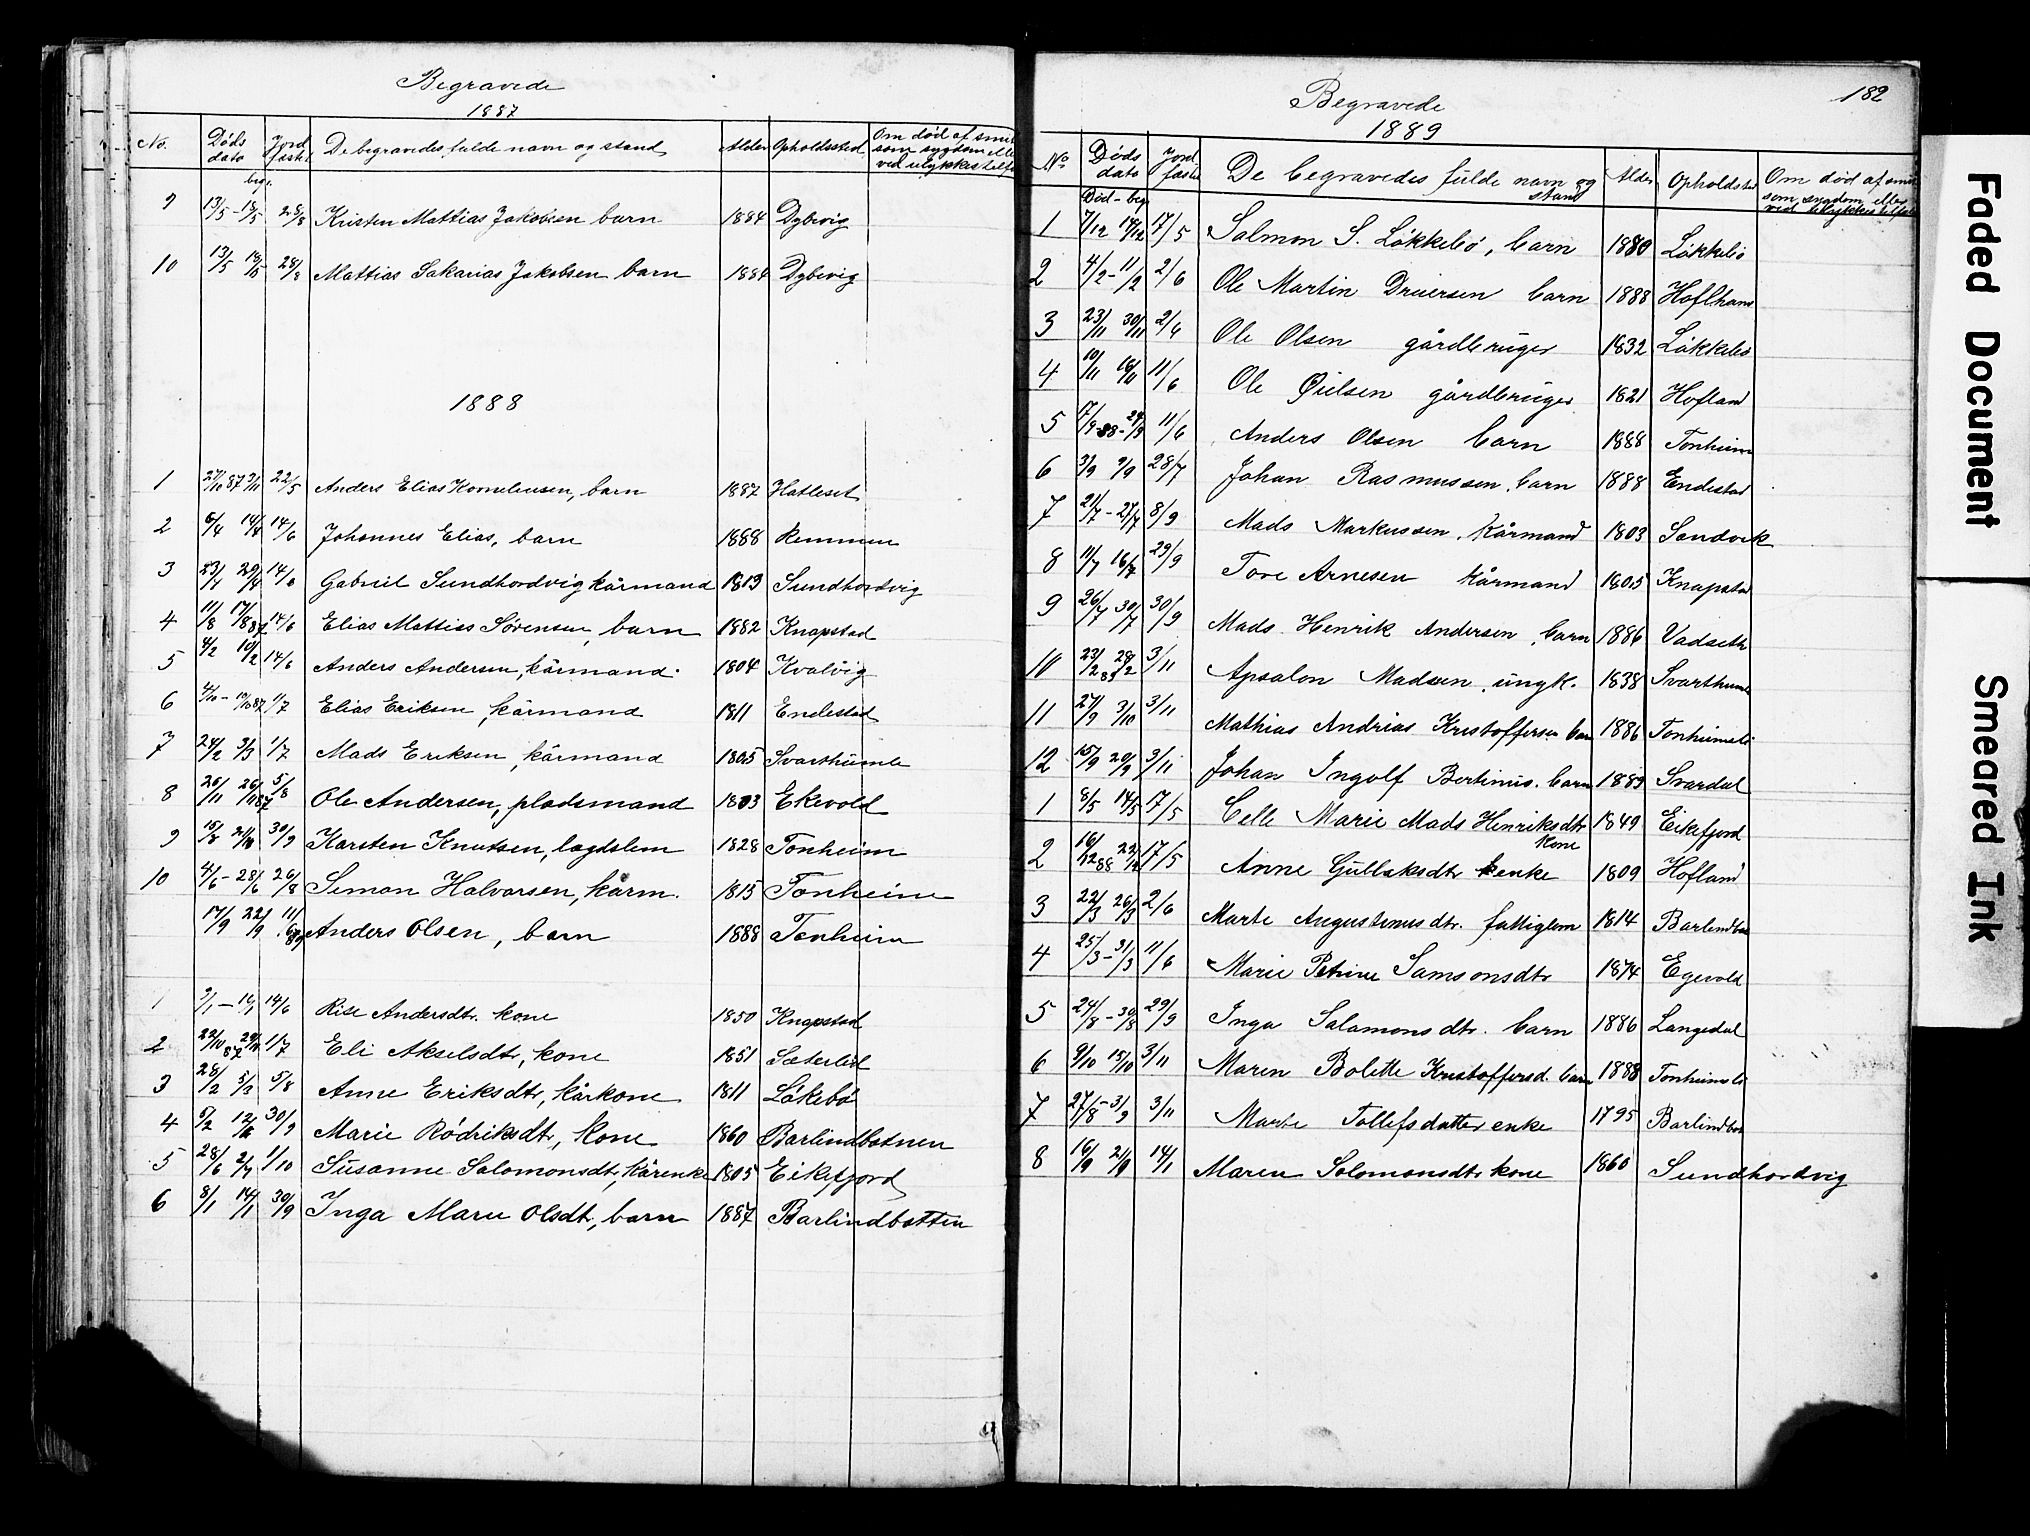 Begravede
1887
No. Døds dato Jordfæstet De begravedes fulde navn og stand Alder Opholdssted Om død af smitsom sygdom eller ved ulykkestilf
begr.
9 13/5 - 18/5 28/8 Kristen Mattias Jakobsen barn 1884 Dybevig
10 13/5 18/5 28/8 Mattias Sakarias Jakobsen barn 1884 Dybevig
1888
1 27/10 87 3/11 22/5 Anders Elias Korneliusen, barn 1887 Hatleset
2 6/4 14/4 14/6 Johannes Elias, barn 1888 Remmen
3 23/4 29/4 14/6 Gabriel Sundhordvig kårmand 1813 Sundhordvig
4 11/8 17/8 87 14/6 Elias Mattias Sørensen, barn 1882 Knapstad
5 4/2 10/2 14/6 Anders Andersen, kårmand. 1804 Kvalvig
6 4/10 - 10/10 87 1/7 Elias Eriksen, kårmand 1811 Endestad
7 24/2 3/3 1/7 Mads Eriksen, kårmand 1805 Svarthumle
8 20/11 26/11 87 5/8 Ole Andersen, pladsmand 1803 Ekevold
9 30/9 Karsten Knutsen, lægdslem 1828 Tonheim
10 4/6 - 28/6 26/8 Simon Halvorsen, kårm. 1815 Tonheim
17/9 22/9 11/6 89 Anders Olsen, barn 1888 Tonheim
1 14/6 Rise Andersdtr. kone 1850 Knapstad
2 23/10 87 29/10 1/7 Eli Akselsdtr, kone 1851 Sæterlid
3 28/2 5/3 5/8 Anne Eriksdtr, kårkone 1811 Løkebø
4 5/2 12/2 30/9 Marie Rødriksdtr, kone 1860 Barlindbotnen
5 28/6 2/7 1/10 Susanne Salomonsdtr, kårenke 1805 Eikefjord
6 8/1 14/1 30/9 Inga Marie Olsdtr, barn 1887 Barlindbotten
182
Begravede
1889
No Døds dato Jordfæstet De begravedes fulde navn og stand Alder Opholdsted Om død af smitsom sygdom eller ved ulykkestilfæ
Død - beg.
1 7/12 14/12 17/5 Salmon S. Løkkebø, barn 1880 Løkkebø
2 4/2 - 11/2 2/6 Ole Martin Driversen barn 1888 Hoflham
3 23/11 30/11 2/6 Ole Olsen gårdbruger 1832 Løkkebø
4 10/11 16/11 11/6 Ole Øielsen gårdbruger 1821 Hofland
5 17/9 - 88 - 24/9 11/6 Anders Olsen barn 1888 Tonheim
6 3/9 9/9 28/7 Johan Rasmussen, barn 1888 Endestad
7 21/7 - 27/7 8/9 Mads Markussen, kårmand 1803 Sandvik
8 11/7 16/7 29/9 Tore Arnesen kårmand 1805 Knapstad
9 26/7 30/7 30/9 Mads Henrik Andersen, barn 1886 Vadseth
10 23/2 89 28/2 3/11 Apsalon Madsen, ungk. 1838 Svarthumle
11 27/9 3/10 3/11 Mathias Andrias Kristoffersen barn 1886 Tonheimsli
12 15/9 20/9 3/11 Johan Ingolf Bertinus. barn 1889 Svardal
1 8/5 14/5 17/5 Celle Marie Mads Henriksdtr kone 1849 Eikefjord
2 16/12 88 22/12 17/5 Anne Gullaksdtr enke 1809 Hofland
3 22/3 26/3 2/6 Marte Augustinusdtr. fattiglem 1814 Barlindbo
4 25/3 - 31/3 11/6 Marie Petrine Samsonsdtr 1874 Egevold
5 24/8 - 30/8 29/9 Inga Salamonsdtr. barn 1886 Langedal
6 9/10 15/10 3/11 Maren Bolette Kristoffersd. barn 1888 Tonheimsli
7 27/8 - 3/9 3/11 Marte Tollefsdatter enke 1795 Barlindbo
8 16/9 21/9 14/1 Maren Solomonsdtr kone 1860 Sundhordvig
Faded Document
Smeared Ink